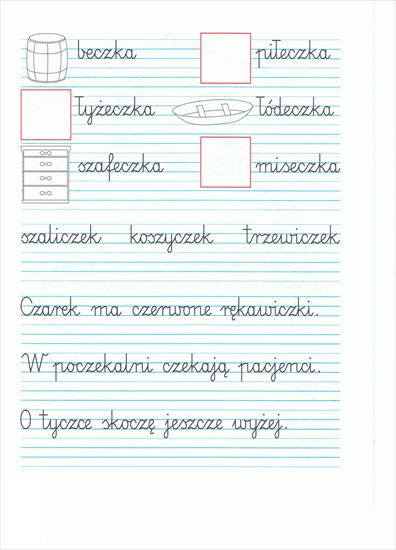 beczka piłeczka
łyżeczka łódeczka
szafeczka miseczka
szaliczek koszyczek trzewiczek
Czarek ma czerwone rękawiczki.
W poczekalni czekają pacjenci.
O tyczce skoczę jeszcze wyżej.